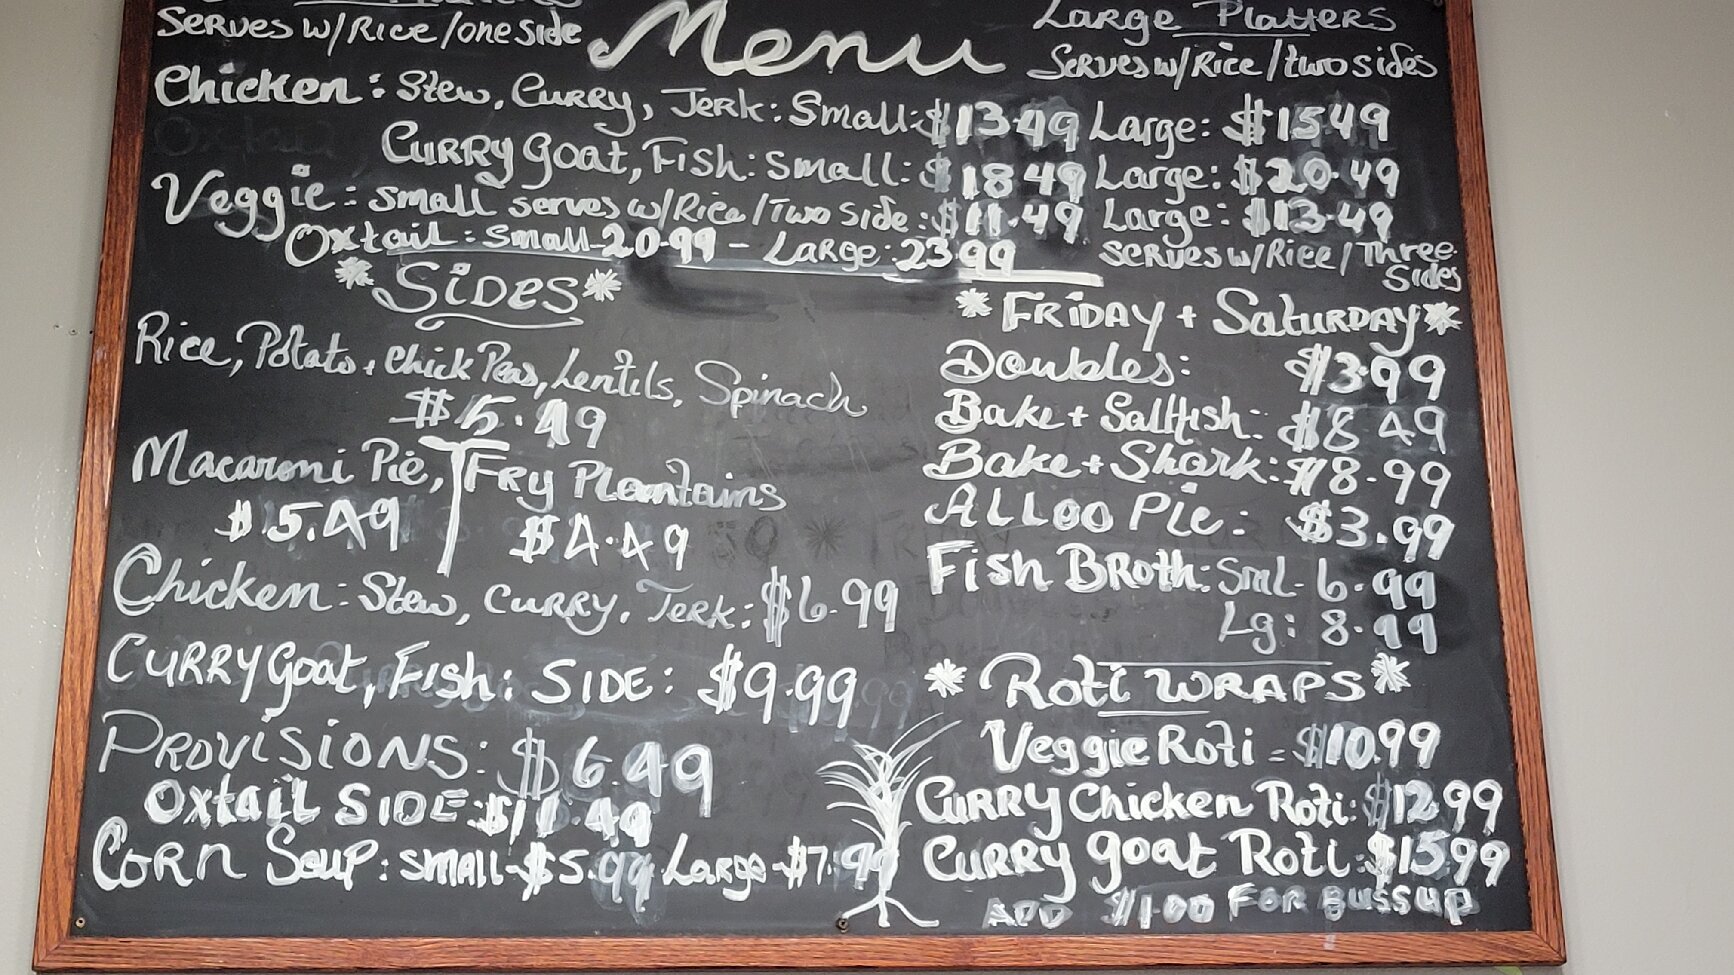 Serves w/Rice/one side
Menu
Large Platters
Serves w/Rice/two sides
Chicken: Stew, Curry, Jerk: Small: $13.49 Large: $15.49
Curry goat, Fish: Small: $18.49 Large: $20.49
Veggie: Small serves w/Rice/Two side: $11.49 Large: $13.49
Serves w/Rice/Three Sides
Oxtail: Small-20.99 - Large: 23.99
*Sides*
Rice, Potato + Chick Peas, Lentils, Spinach
$5.49
Macaroni Pie, Fry Plantains
$5.49 $4.49
Chicken: Stew, Curry, Jerk: $6.99
Curry Goat, Fish: SIDE: $9.99
Provisions: $6.49
Oxtail SIDE: $11.49
Corn Soup: Small-$5.99 Large-$7.99
*Friday + Saturday*
Doubles: $3.99
Bake + Saltfish: $8.49
Bake + Shark: $8.99
ALLOO Pie: $3.99
Fish Broth: Sml- 6.99
Lg: 8.99
*Roti WRAPS*
Veggie Roti = $10.99
Curry Chicken Roti: $12.99
Curry goat Roti: $15.99
ADD $1.00 FOR BUSSUP